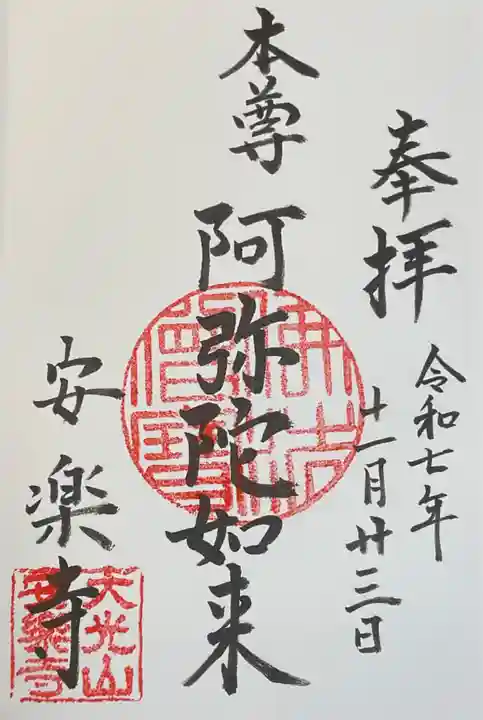 奉拝
令和七年
十一月廿三日
本尊
阿弥陀如来
安楽寺
佛法僧寶
天光山
安樂寺